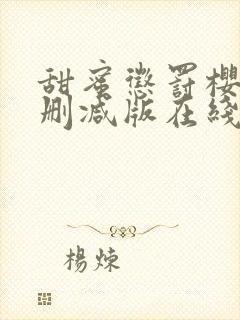 甜蜜懲罰櫻
刪減版在綫
楊煉